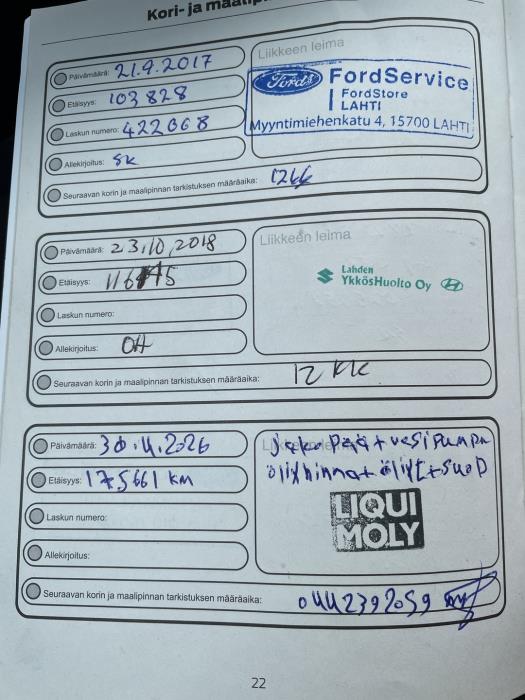 Kori- ja
Päivämäärä: 21.9.2017
Etäisyys: 103 828
Laskun numero: 422068
Allekirjoitus: SK
Liikkeen leima
Ford
FordService
FordStore
LAHTI
Myyntimiehenkatu 4, 15700 LAHTI
Seuraavan korin ja maalipinnan tarkistuksen määräaika:
Päivämäärä: 23.10.2018
Etäisyys:
Laskun numero:
Allekirjoitus: OH
Liikkeen leima
Lahden
YkkösHuolto Oy
Seuraavan korin ja maalipinnan tarkistuksen määräaika: 12 KK
Päivämäärä:
Etäisyys: 175661 KM
Laskun numero:
Allekirjoitus:
Jako Pää + vesi pumpu
LIQUI
MOLY
Seuraavan korin ja maalipinnan tarkistuksen määräaika: 0442392059
22